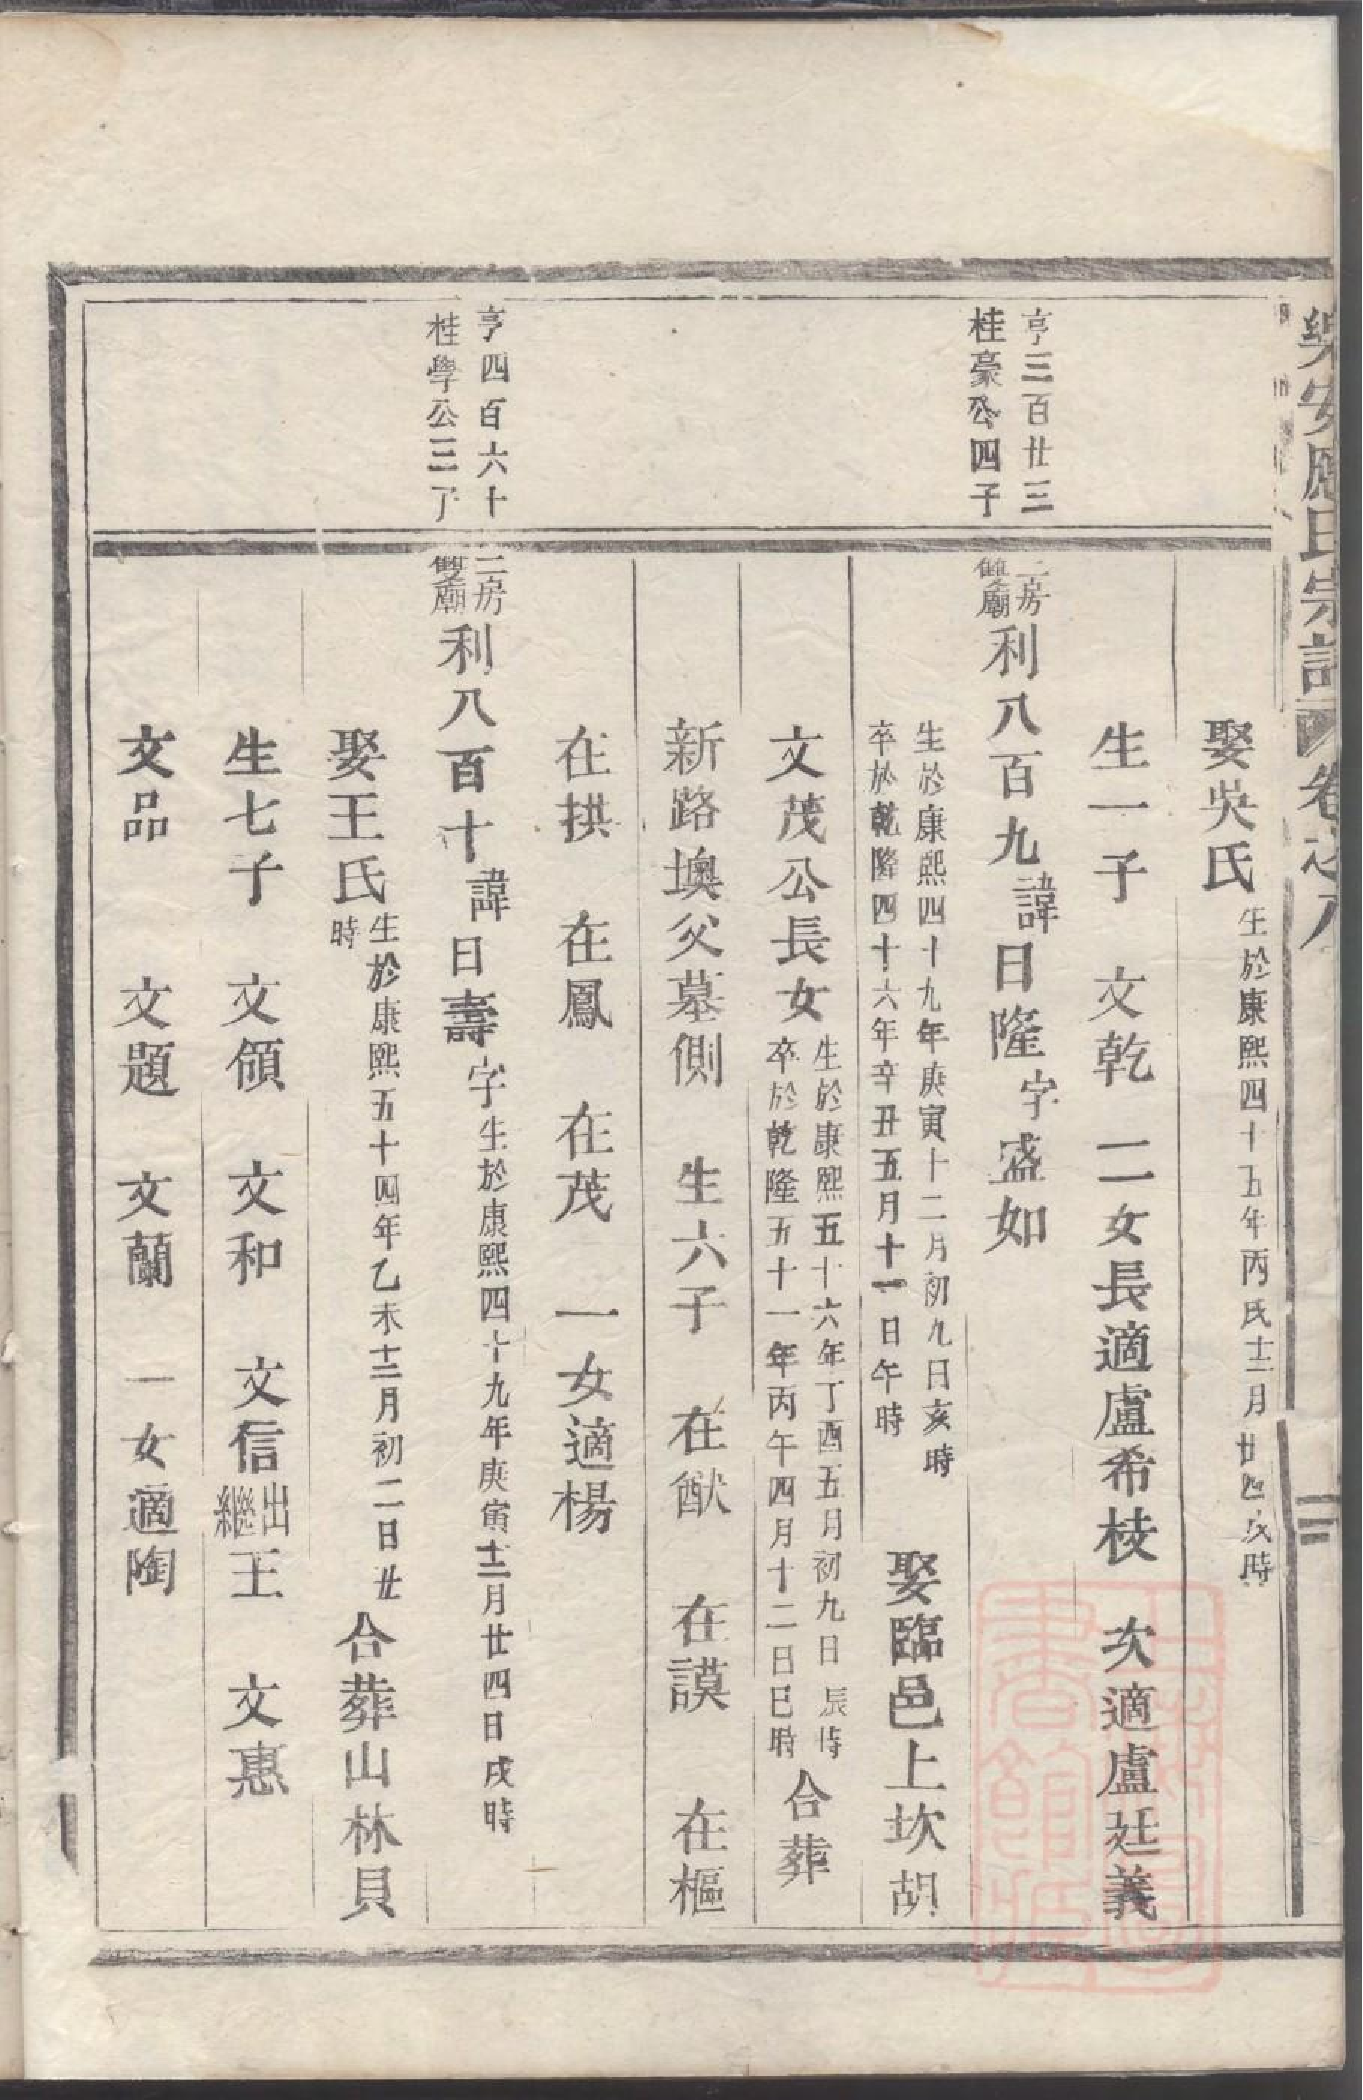 樂安應氏宗譜 卷之八
娶吳氏 生於康熙四十五年丙戌十二月廿四戌時
生一子 文乾 二女長適盧希枝 次適盧廷義
亨三百廿三
桂豪公四子
二房
雙廟
利八百九諱日隆字盛如
生於康熙四十九年庚寅十二月初九日亥時
卒於乾隆四十六年辛丑五月十一日午時
娶臨邑上坎胡
文茂公長女
生於康熙五十六年丁酉五月初九日辰時
卒於乾隆五十一年丙午四月十二日巳時
合葬
新路墺父墓側 生六子 在猷 在謨 在樞
在拱 在鳳 在茂 一女適楊
亨四百六十
桂學公三子
二房
雙廟
利八百十諱日壽字生於康熙四十九年庚寅十二月廿四日戌時
娶王氏
生於康熙五十四年乙未十二月初二日廿
時
合葬山林貝
生七子 文頎 文和 文信出繼王 文惠
文品 文題 文蘭 一女適陶